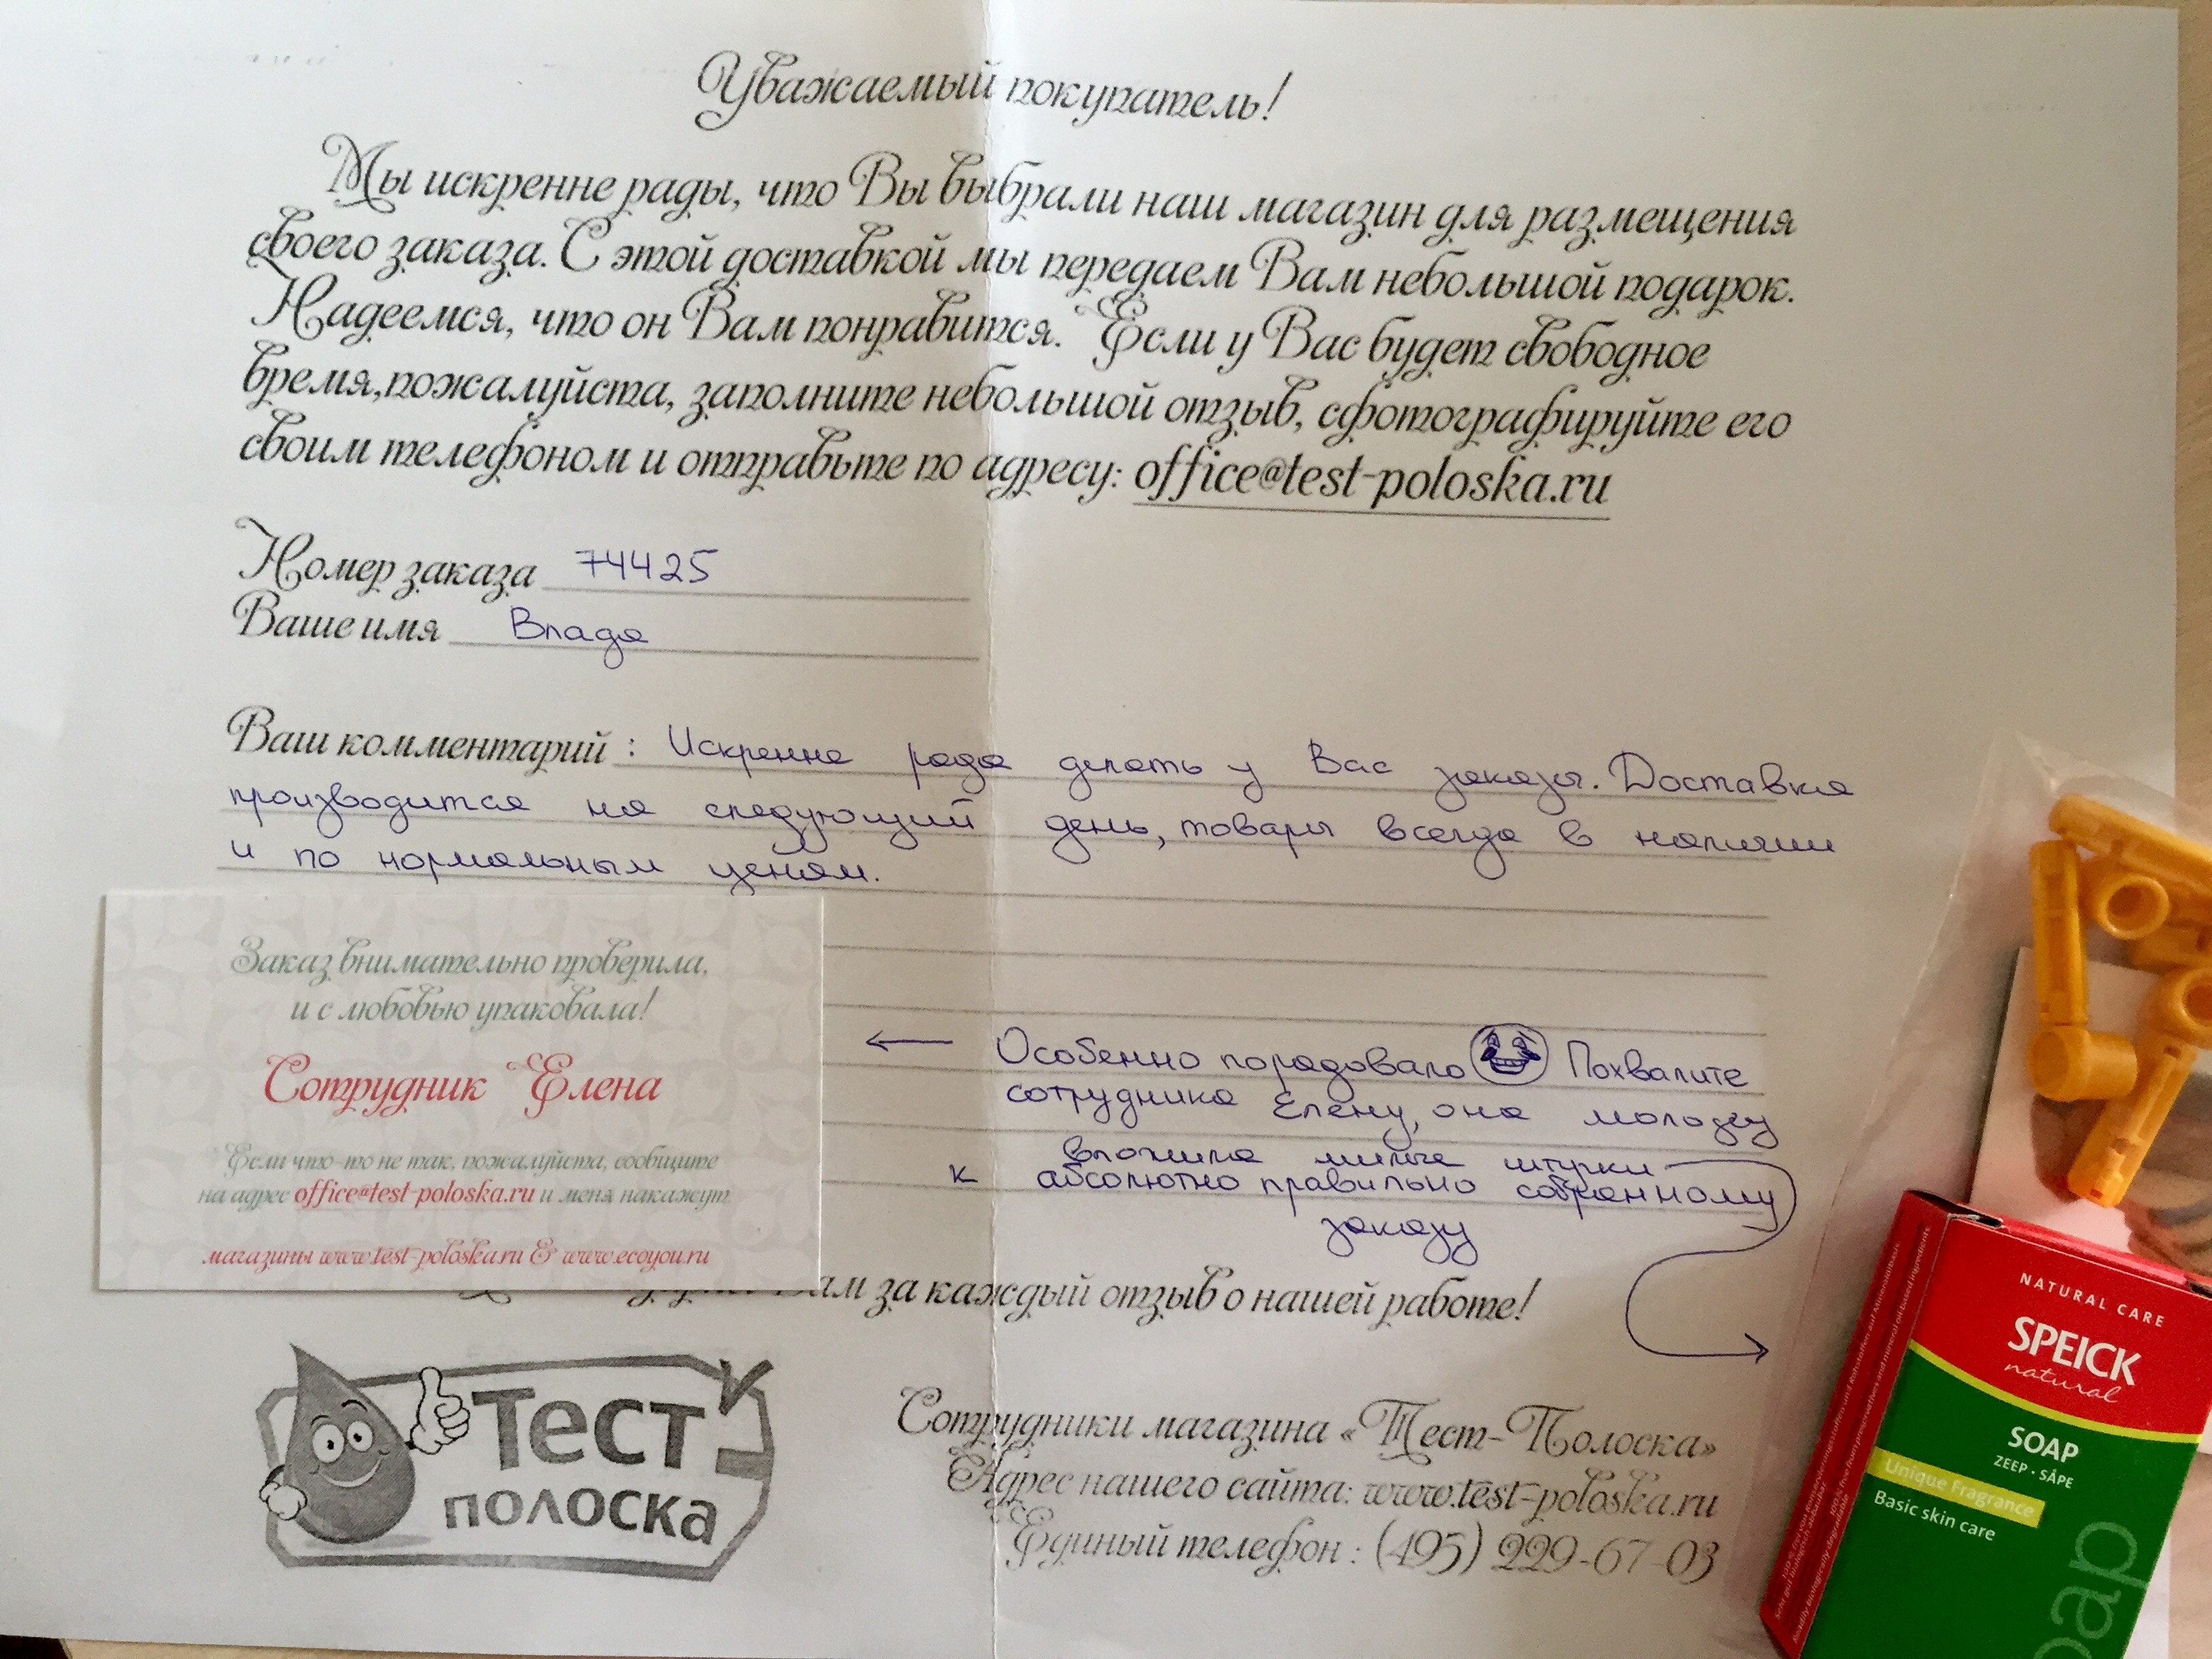 Уважаемый покупатель!
Мы искренне рады, что Вы выбрали наш магазин для размещения
своего заказа. С этой доставкой мы передаем Вам небольшой подарок.
Надеемся, что он Вам понравится. Если у Вас будет свободное
время,пожалуйста, заполните небольшой отзыв, сфотографируйте его
своим телефоном и отправьте по адресу: office@test-poloska.ru
Номер заказа 74425
Ваше имя Влада
Ваш комментарий : Искренне рада делать у Вас заказы. Доставка
производится на следующий день, товары всегда в наличии
и по нормальным ценам.
Заказ внимательно проверила,
и с любовью упаковала!
Сотрудник Елена
Если что-то не так, пожалуйста, сообщите
на адрес office@test-poloska.ru и меня накажут
магазины www.test-poloska.ru & www.ecoyou.ru
Особенно порадовало Похвалите
сотрудника Елену, она
вложила милые штучки
к абсолютно правильно собранному
заказу
Вам за каждый отзыв о нашей работе!
Тест
полоска
Сотрудники магазина «Тест-Полоска»
Адрес нашего сайта: www.test-poloska.ru
Единый телефон : (495) 229-67-03
NATURAL CARE
SPEICK
natural
SOAP
ZEEP · SÅPE
Unique Fragrance
Basic skin care